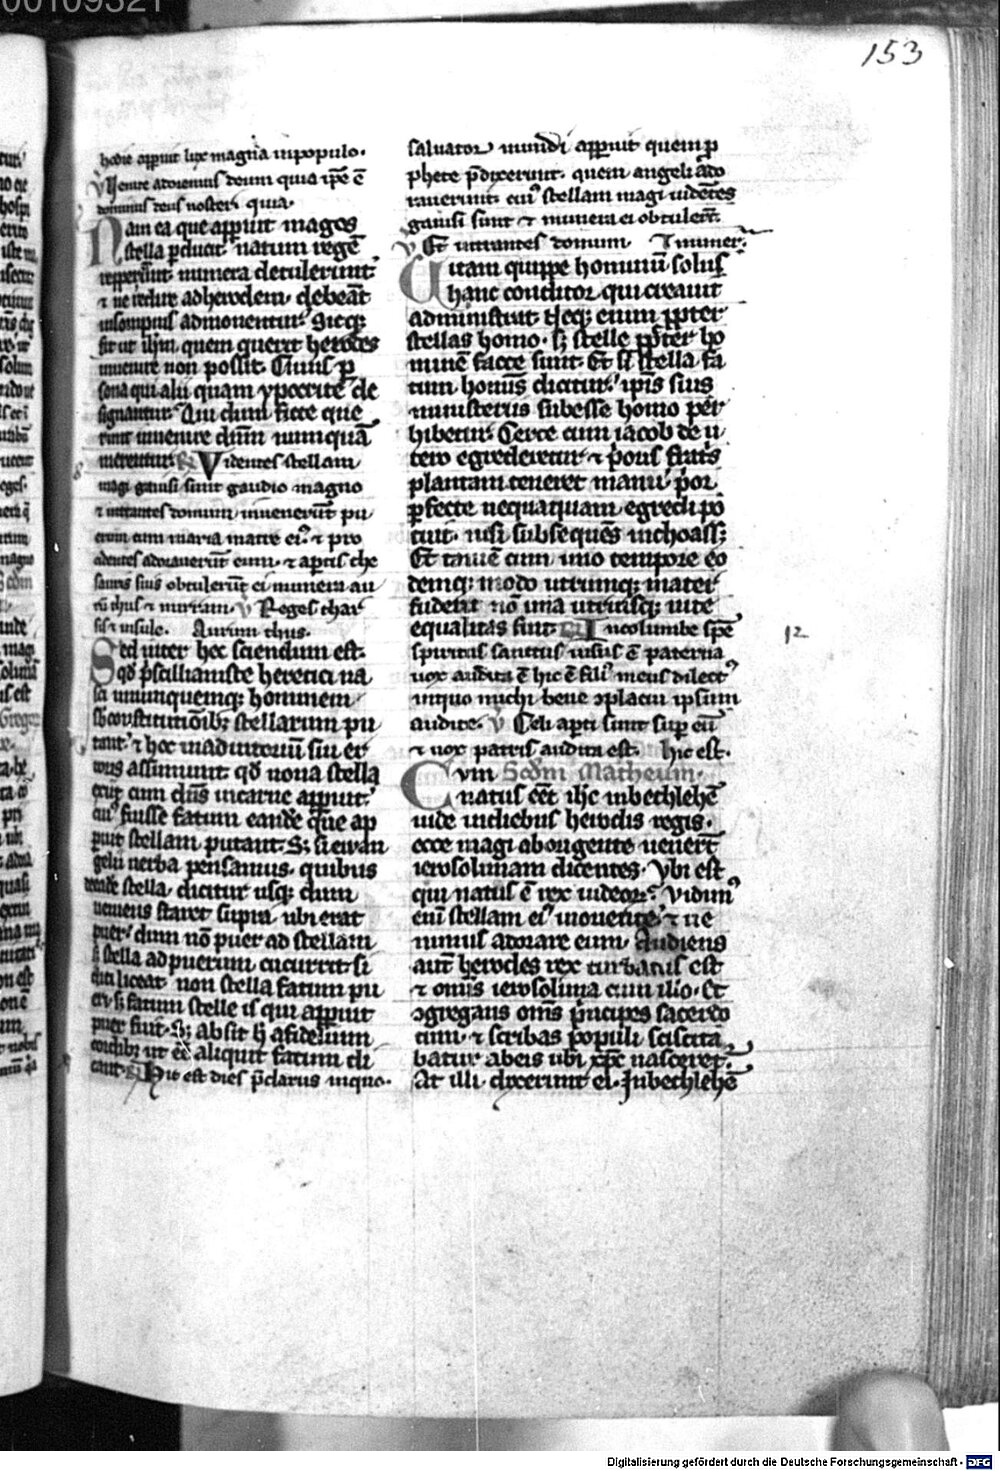 153
hodie apparuit lux magna in populo.
℣ Venite adoremus deum quia ip̄e ē
dominus deus noster quia.
Nam ea que apparuit magos
stella p̱ducit natum regē
repperiūt munera detulerunt
⁊ ne redire ad herodem debeāt
in sompnis admonentur. Sicq;
fit ut ih̄m quem querit herodes
inuenire non possit. Cuius p̱
sona qui alii quam ypocrite de
signantur. Qui dum ficte que
runt inuenire dn̄m numquā
merentur. ℟ Videntes stellam
magi gauisi sunt gaudio magno
⁊ intrantes domum inuenerūt pu
erum cum maria matre eiꝰ ⁊ pro
cidentes adorauerūt eum. ⁊ aptis the
sauris suis obtulerūt ei munera au
rū thus ⁊ mirram. ℣ Reges thar
sis ⁊ insule. Aurum thus.
Sed inter hec sciendum est.
qd̄ p̄scillianiste heretici na
sci unumquemq; hominem
sb̄ constitutiōib; stellarum pu
tant. ⁊ hoc in adiutoriū sui er
roris assumunt qd̄ noua stella
exiit cum dn̄s in carne apparuit.
cuiꝰ fuisse fatum eandē que ap
paruit stellam putant. S; si ewan
gelii uerba pensamus. quibus
de stella dicitur usq; dum
ueniens staret supra ubi erat
puer. dum nō puer ad stellam
s; stella ad puerum cucurrit. si
dici liceat. non stella fatum pu
eri. s; fatum stelle is qui apparuit
puer fuit. S; absit h̄ a fidelium
cordib; ut eē aliquit fatum di
cant. ℟ Hic est dies p̄clarus in quo
saluator mundi apparuit quem p̱
phete p̄dixerunt. quem angeli ado
rauerunt. cuiꝰ stellam magi uidētes
gauisi sunt ⁊ munera ei obtulerūt.
℣ Et intrantes domum
Uitam quippe hominū solus
hanc conditor qui creauit
administrat. Neq; enim ꝓpter
stellas homo. s; stelle ꝓpter ho
minē facte sunt. Et si stella fa
tum hominis dicitur. ipis suis
ministeriis subesse homo per
hibetur. Certe cum iacob de u
tero egrederetur ⁊ p̄oris fratris
plantam teneret manu p̄or
p̱fecte nequaquam egredi po
tuit. nisi subsequēs inchoasset
Et tamē cum uno tempore eo
demq; modo utrumq; mater
fuderit nō una utriusq; uite
equalitas fuit. ℟ In columbe spē
spiritus sanctus uisus ē paterna
uox audita ē hic ē filiꝰ meus dilectꝰ
in quo michi bene ꝯplacui ipsum
audite. ℣ Celi apti sunt sup̱ eū
⁊ uox patris audita est. hic est.
12
Cum Scd̄m Matheum.
natus eēt ihc in bethlehē
iude in diebus herodis regis.
ecce magi ab oriente uenerūt
ierosolimam dicentes. Vbi est
qui natus ē rex iudeorꝫ. Vidimꝰ
enī stellam eiꝰ in oriente ⁊ ue
nimus adorare eum. Audiens
aut̄ herodes rex turbatus est
⁊ omīs ierosolima cum illo. Et
ꝯgregans om̄s p̄ncipes sacerdo
tum. ⁊ scribas populi sciscita
batur ab eis ubi xp̄c nasceret̉.
At illi dixerunt ei. In bethlehē
Digitalisierung gefördert durch die Deutsche Forschungsgemeinschaft · DFG